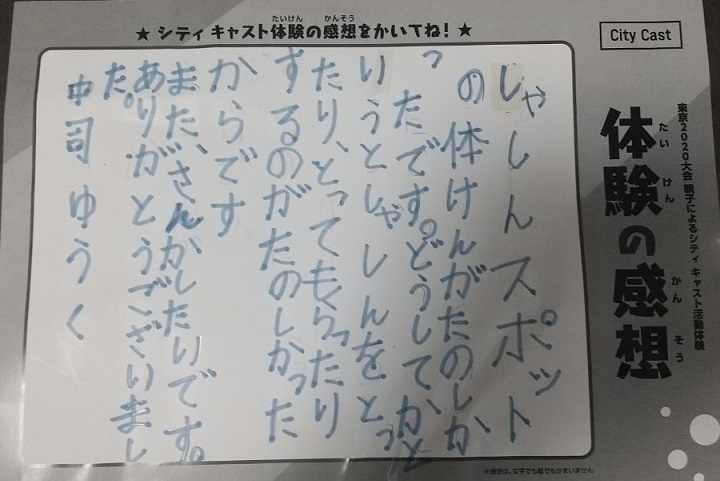 City Cast
東京2020大会 親子によるシティ キャスト活動体験
体験の感想
たいけん かんそう
★ シティ キャスト体験の感想をかいてね! ★
たいけん かんそう
しゃしんスポット
の体けんがたのしか
ったです。どうしてかと
いうとしゃしんをとっ
たり、とってもらったり
するのがたのしかった
からです
また、さんかしたいです。
ありがとうございまし
た。
中司ゆうく
※感想は、文字でも絵でもかまいません